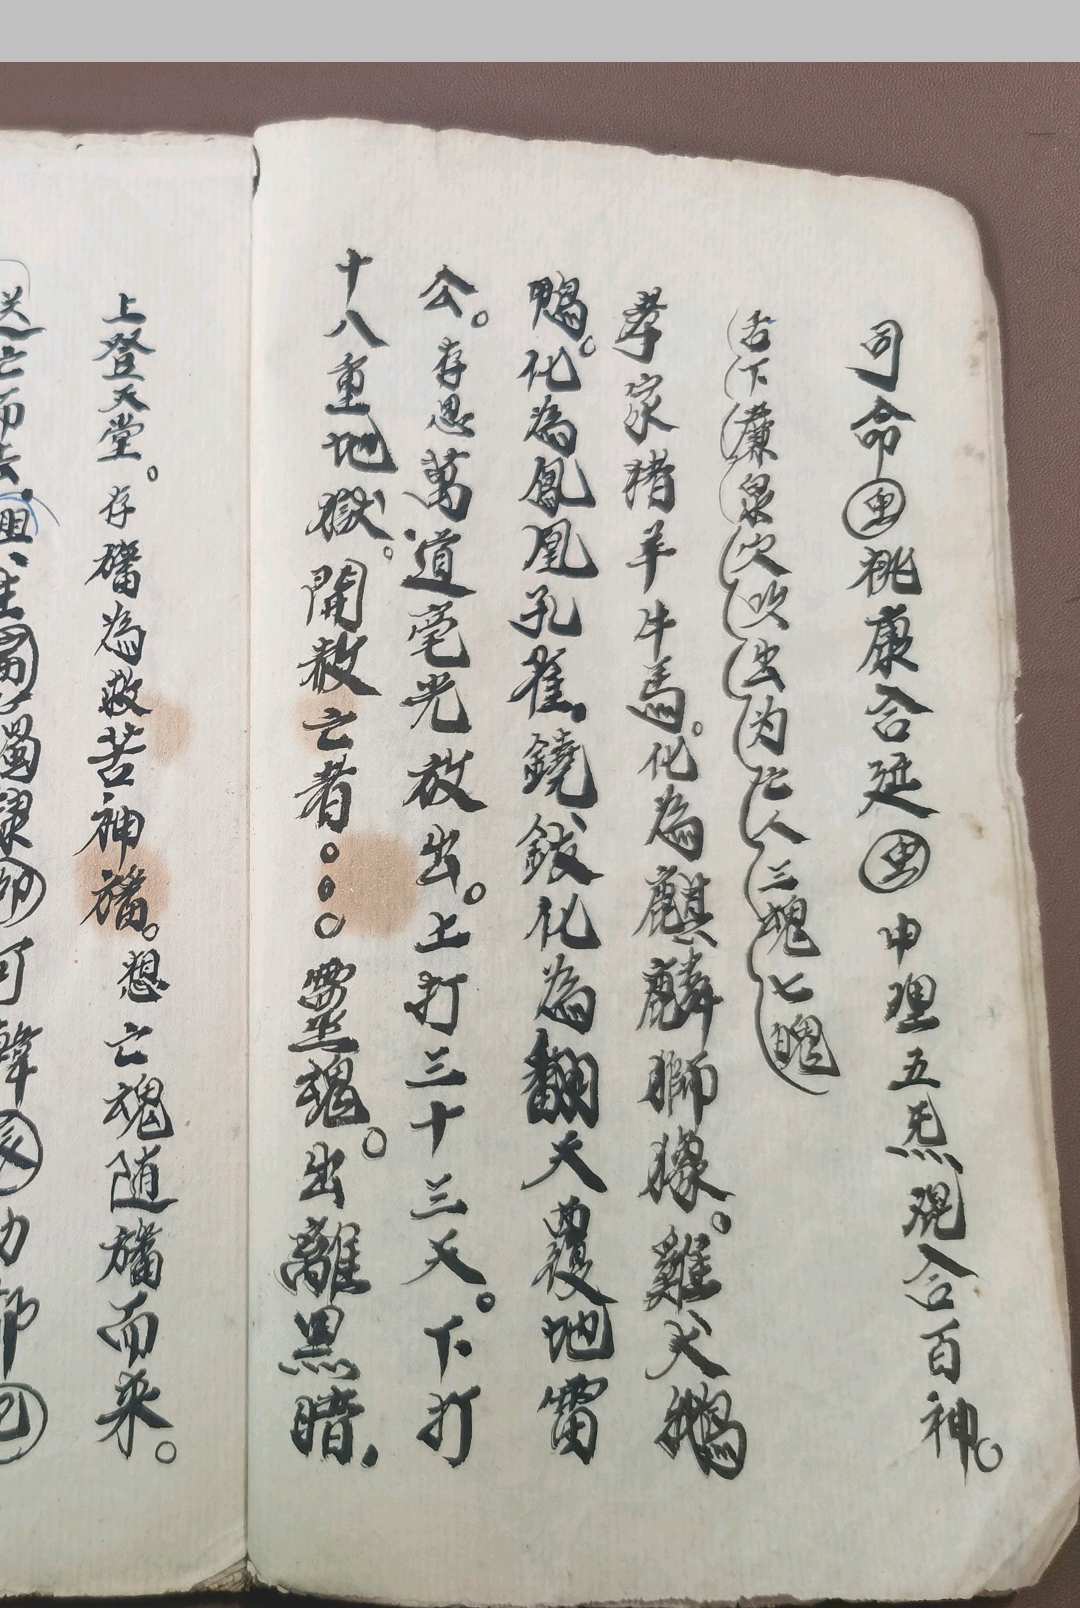 司命虫桃康合延虫申理五炁混合百神。
舌下廉泉穴吹出为亡人三魂七魄
孝家猪羊牛馬。化為麒麟獅猭。雞犬鵝
鴨。化為鳳凰孔雀。鐃鈸化為翻天覆地雷
公。存思萬道毫光放出。上打三十三天。下打
十八重地獄。開赦亡者。靈魂。出離黑暗，
上登天堂。存旛為救苦神旛。想亡魂随旛而來。
送亡而去。